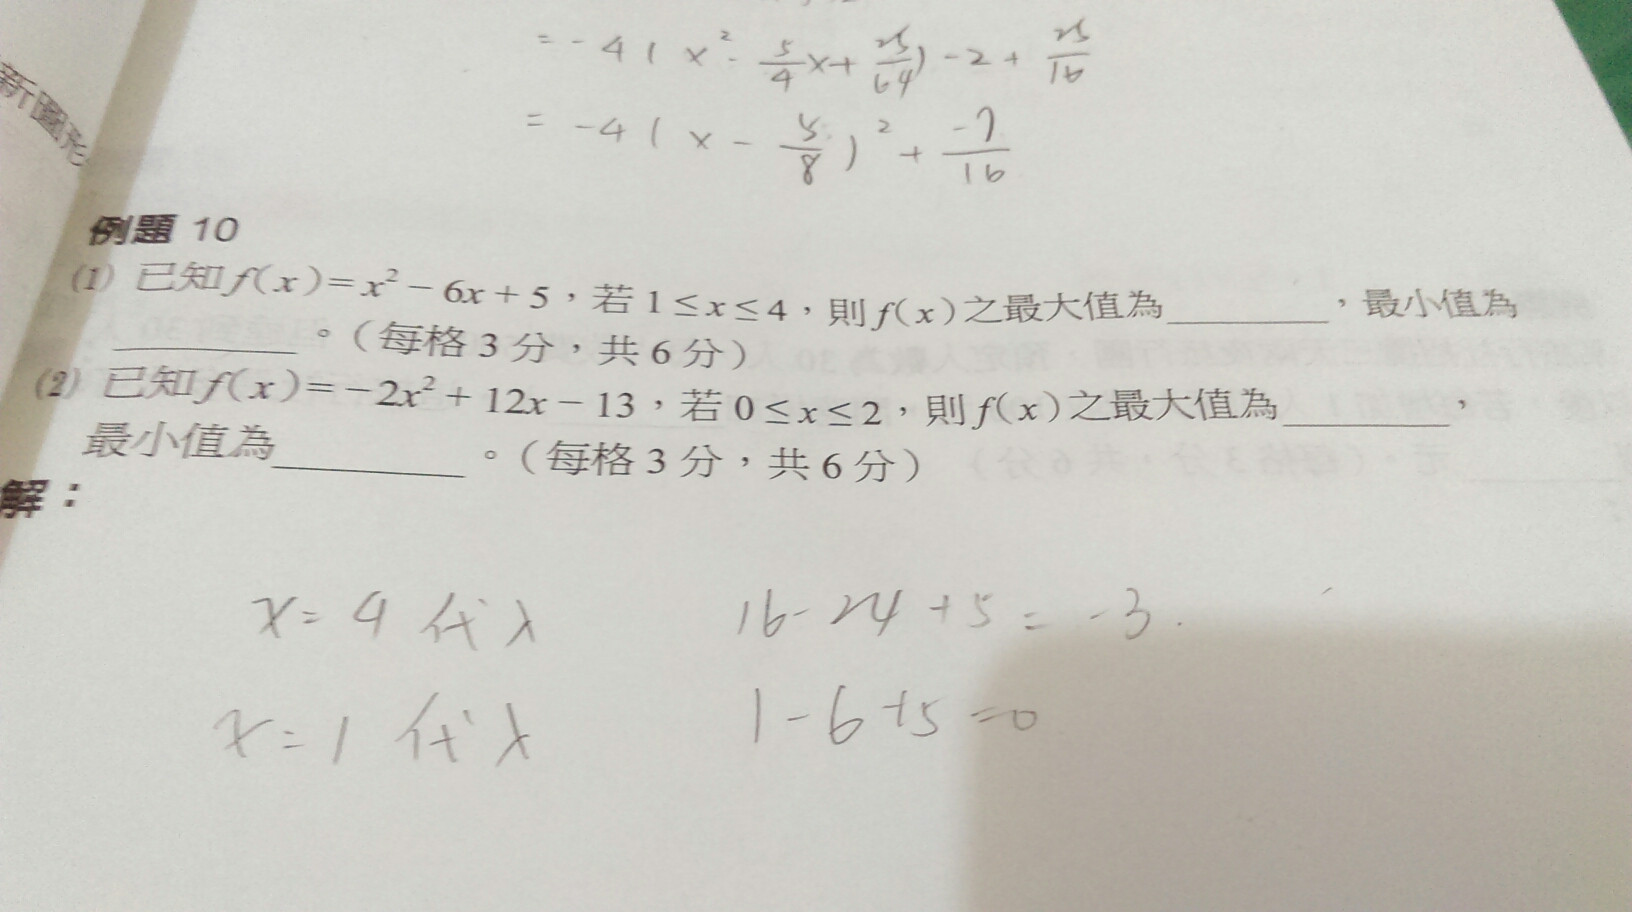 新圖形
= -4(x² - 5/4 x + 25/64) - 2 + 25/16
= -4(x - 5/8)² + -7/16
例題 10
(1) 已知 f(x)=x²-6x+5，若 1≤x≤4，則 f(x)之最大值為________，最小值為
________。（每格 3 分，共 6 分）
(2) 已知 f(x)=-2x²+12x-13，若 0≤x≤2，則 f(x)之最大值為________，
最小值為________。（每格 3 分，共 6 分）
解：
x=4 代入 16-24+5=-3.
x=1 代入 1-6+5=0